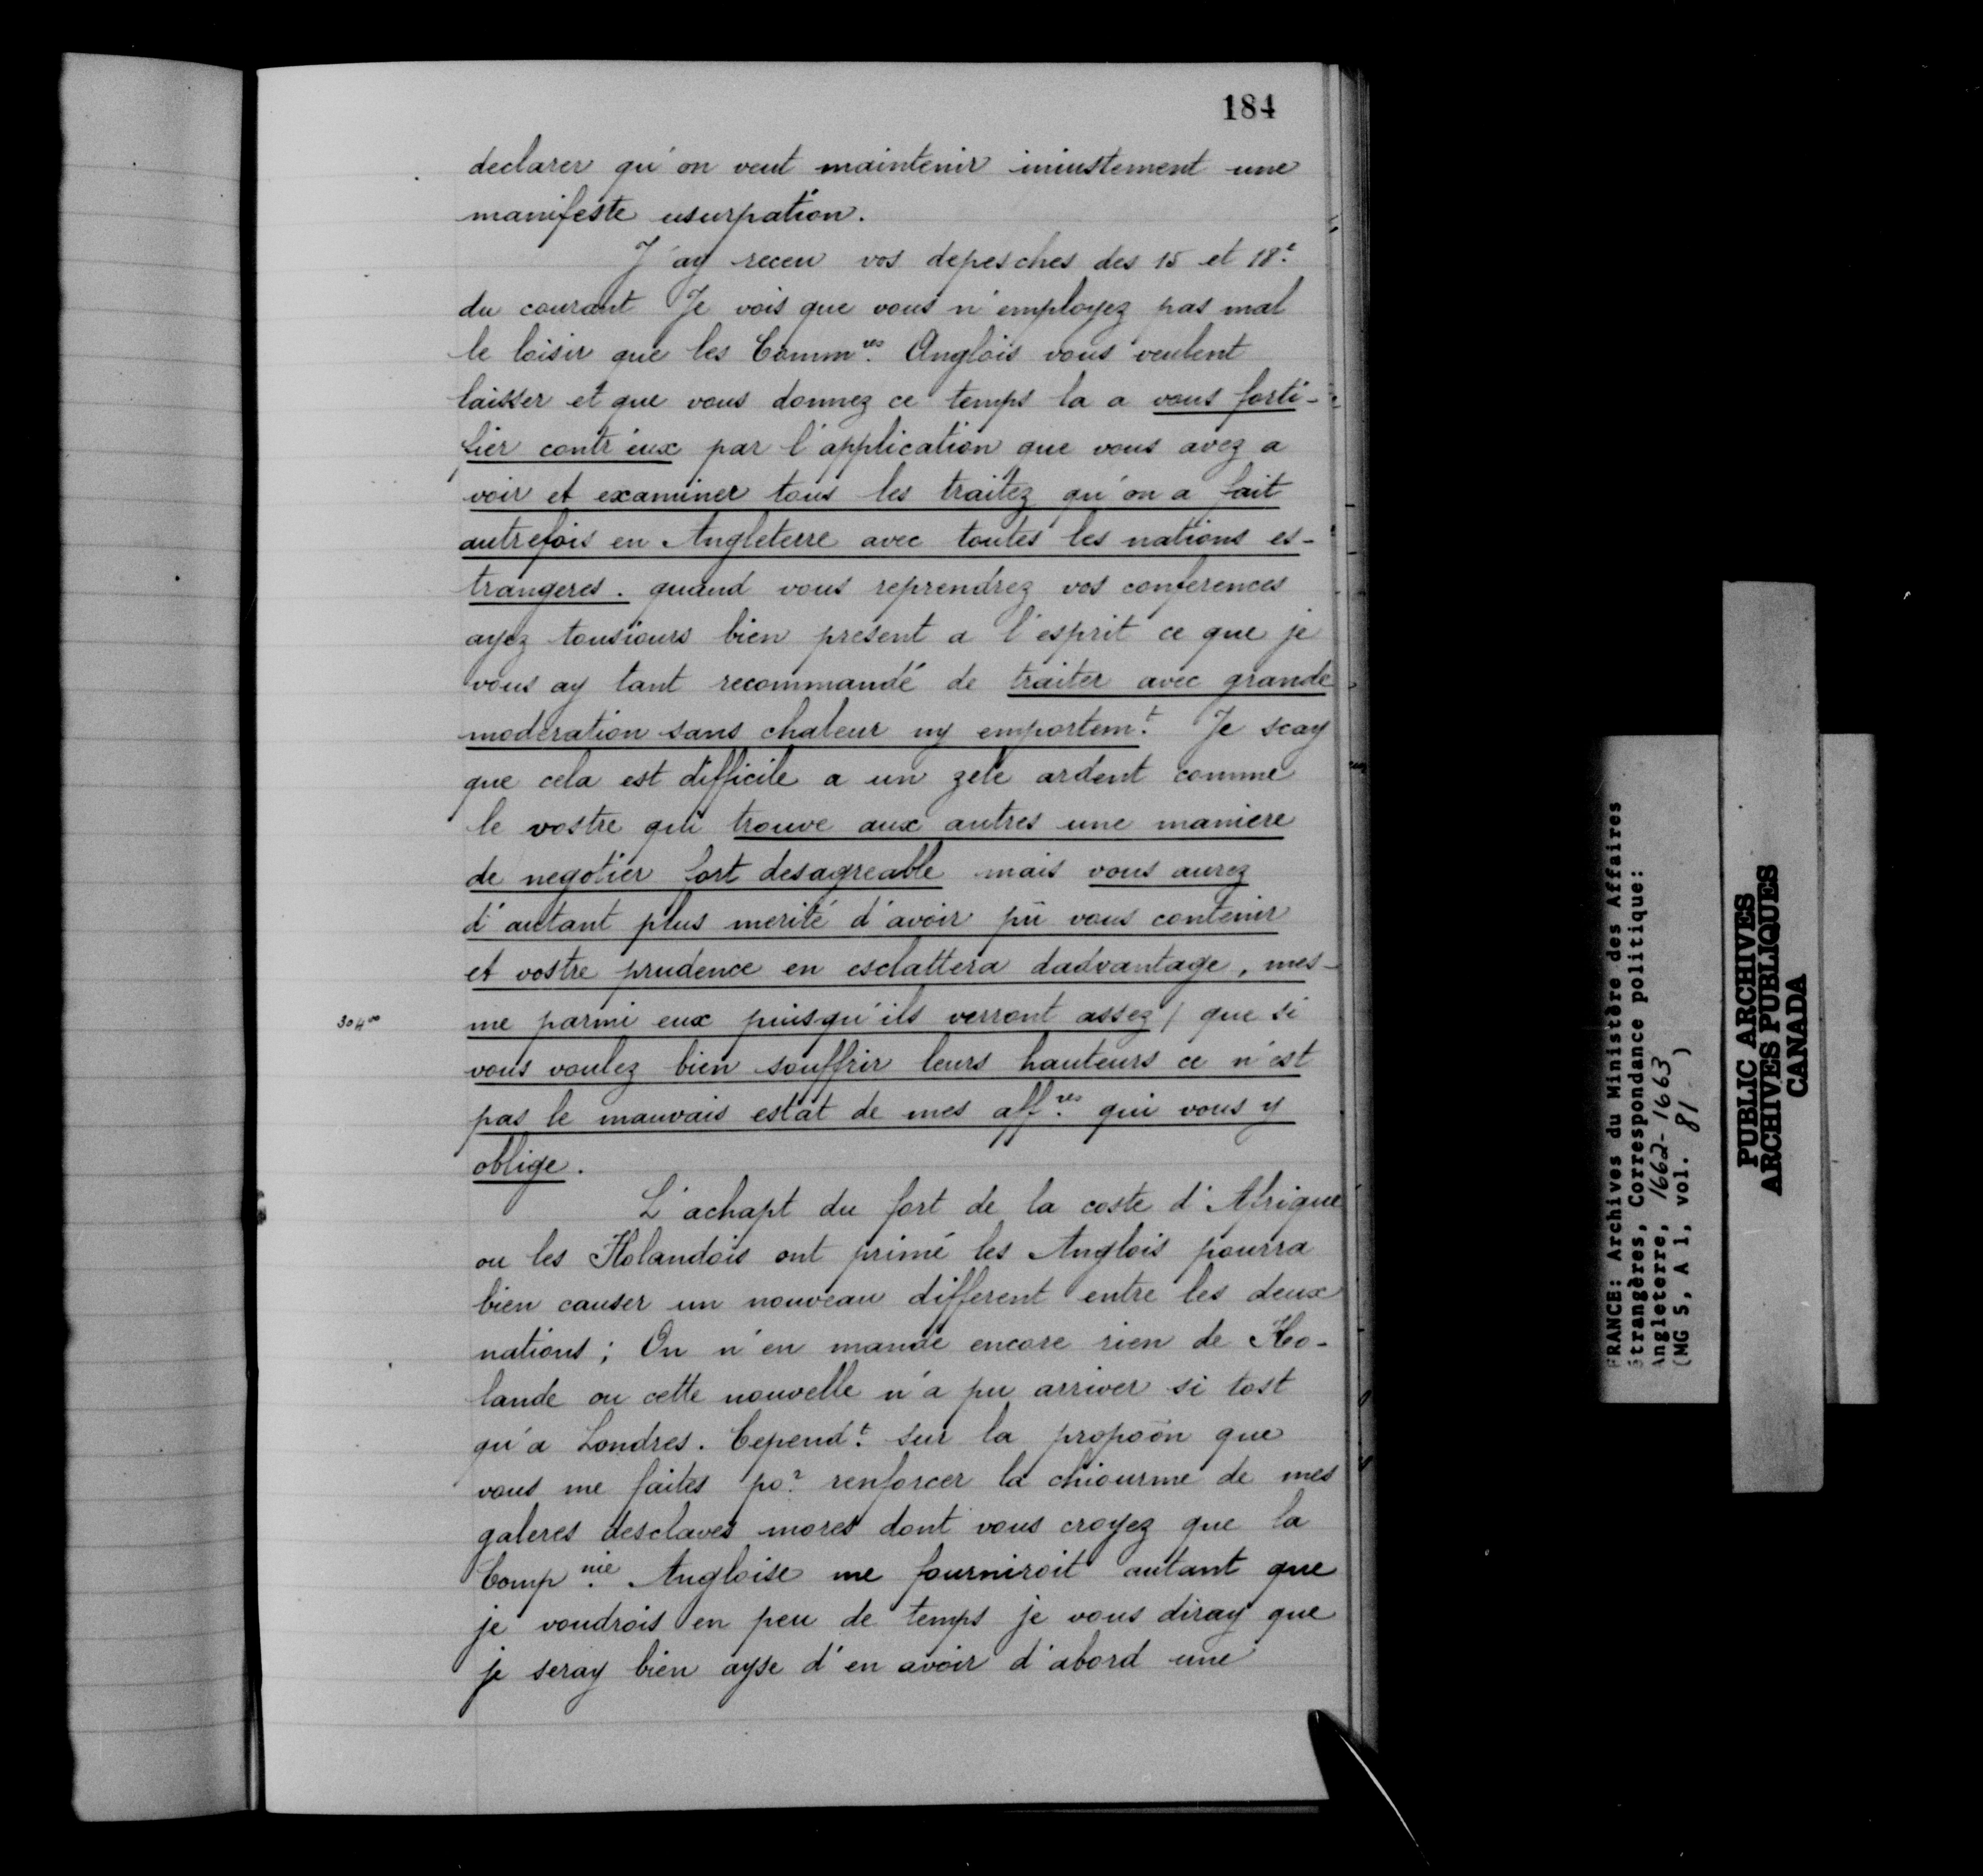 184
declarer qu'on veut maintenir iniustement une
manifeste usurpation.
J'ay receu vos depesches des 15 et 18e
du courant Je vois que vous n'employez pas mal
le loisir que les Commres Anglois vous veulent
laisser et que vous donnez ce temps la a vous forti-
fier contr'eux par l'application que vous avez a
voir et examiner tous les traitez qu'on a fait
autrefois en Angleterre avec toutes les nations es-
trangeres. quand vous reprendrez vos conferences
ayez tousiours bien present a l'esprit ce que je
vous ay tant recommandé de traiter avec grande
moderation sans chaleur ny emportemt. Je scay
que cela est difficile a un zele ardent comme
le vostre qui trouve aux autres une maniere
de negotier fort desagreable mais vous aurez
d'autant plus merité d'avoir pû vous contenir
et vostre prudence en esclattera dadvantage, mes-
304vo me parmi eux puisqu'ils verront assez / que si
vous voulez bien souffrir leurs hauteurs ce n'est
pas le mauvais estat de mes affres qui vous y
oblige.
L'achapt du fort de la coste d'Afrique
ou les Holandois ont primé les Anglois pourra
bien causer un nouveau different entre les deux
nations; On n'en mande encore rien de Ho-
lande ou cette nouvelle n'a pu arriver si tost
qu'a Londres. Cependt. sur la propoōn que
vous me faites por renforcer la chiourme de mes
galeres desclaves mores dont vous croyez que la
Compnie Angloise me fourniroit autant que
je voudrois en peu de temps je vous diray que
je seray bien ayse d'en avoir d'abord une
FRANCE: Archives du Ministère des Affaires
Étrangères, Correspondance politique:
Angleterre, 1662-1663
(MG 5, A 1, vol. 81 )
PUBLIC ARCHIVES
ARCHIVES PUBLIQUES
CANADA